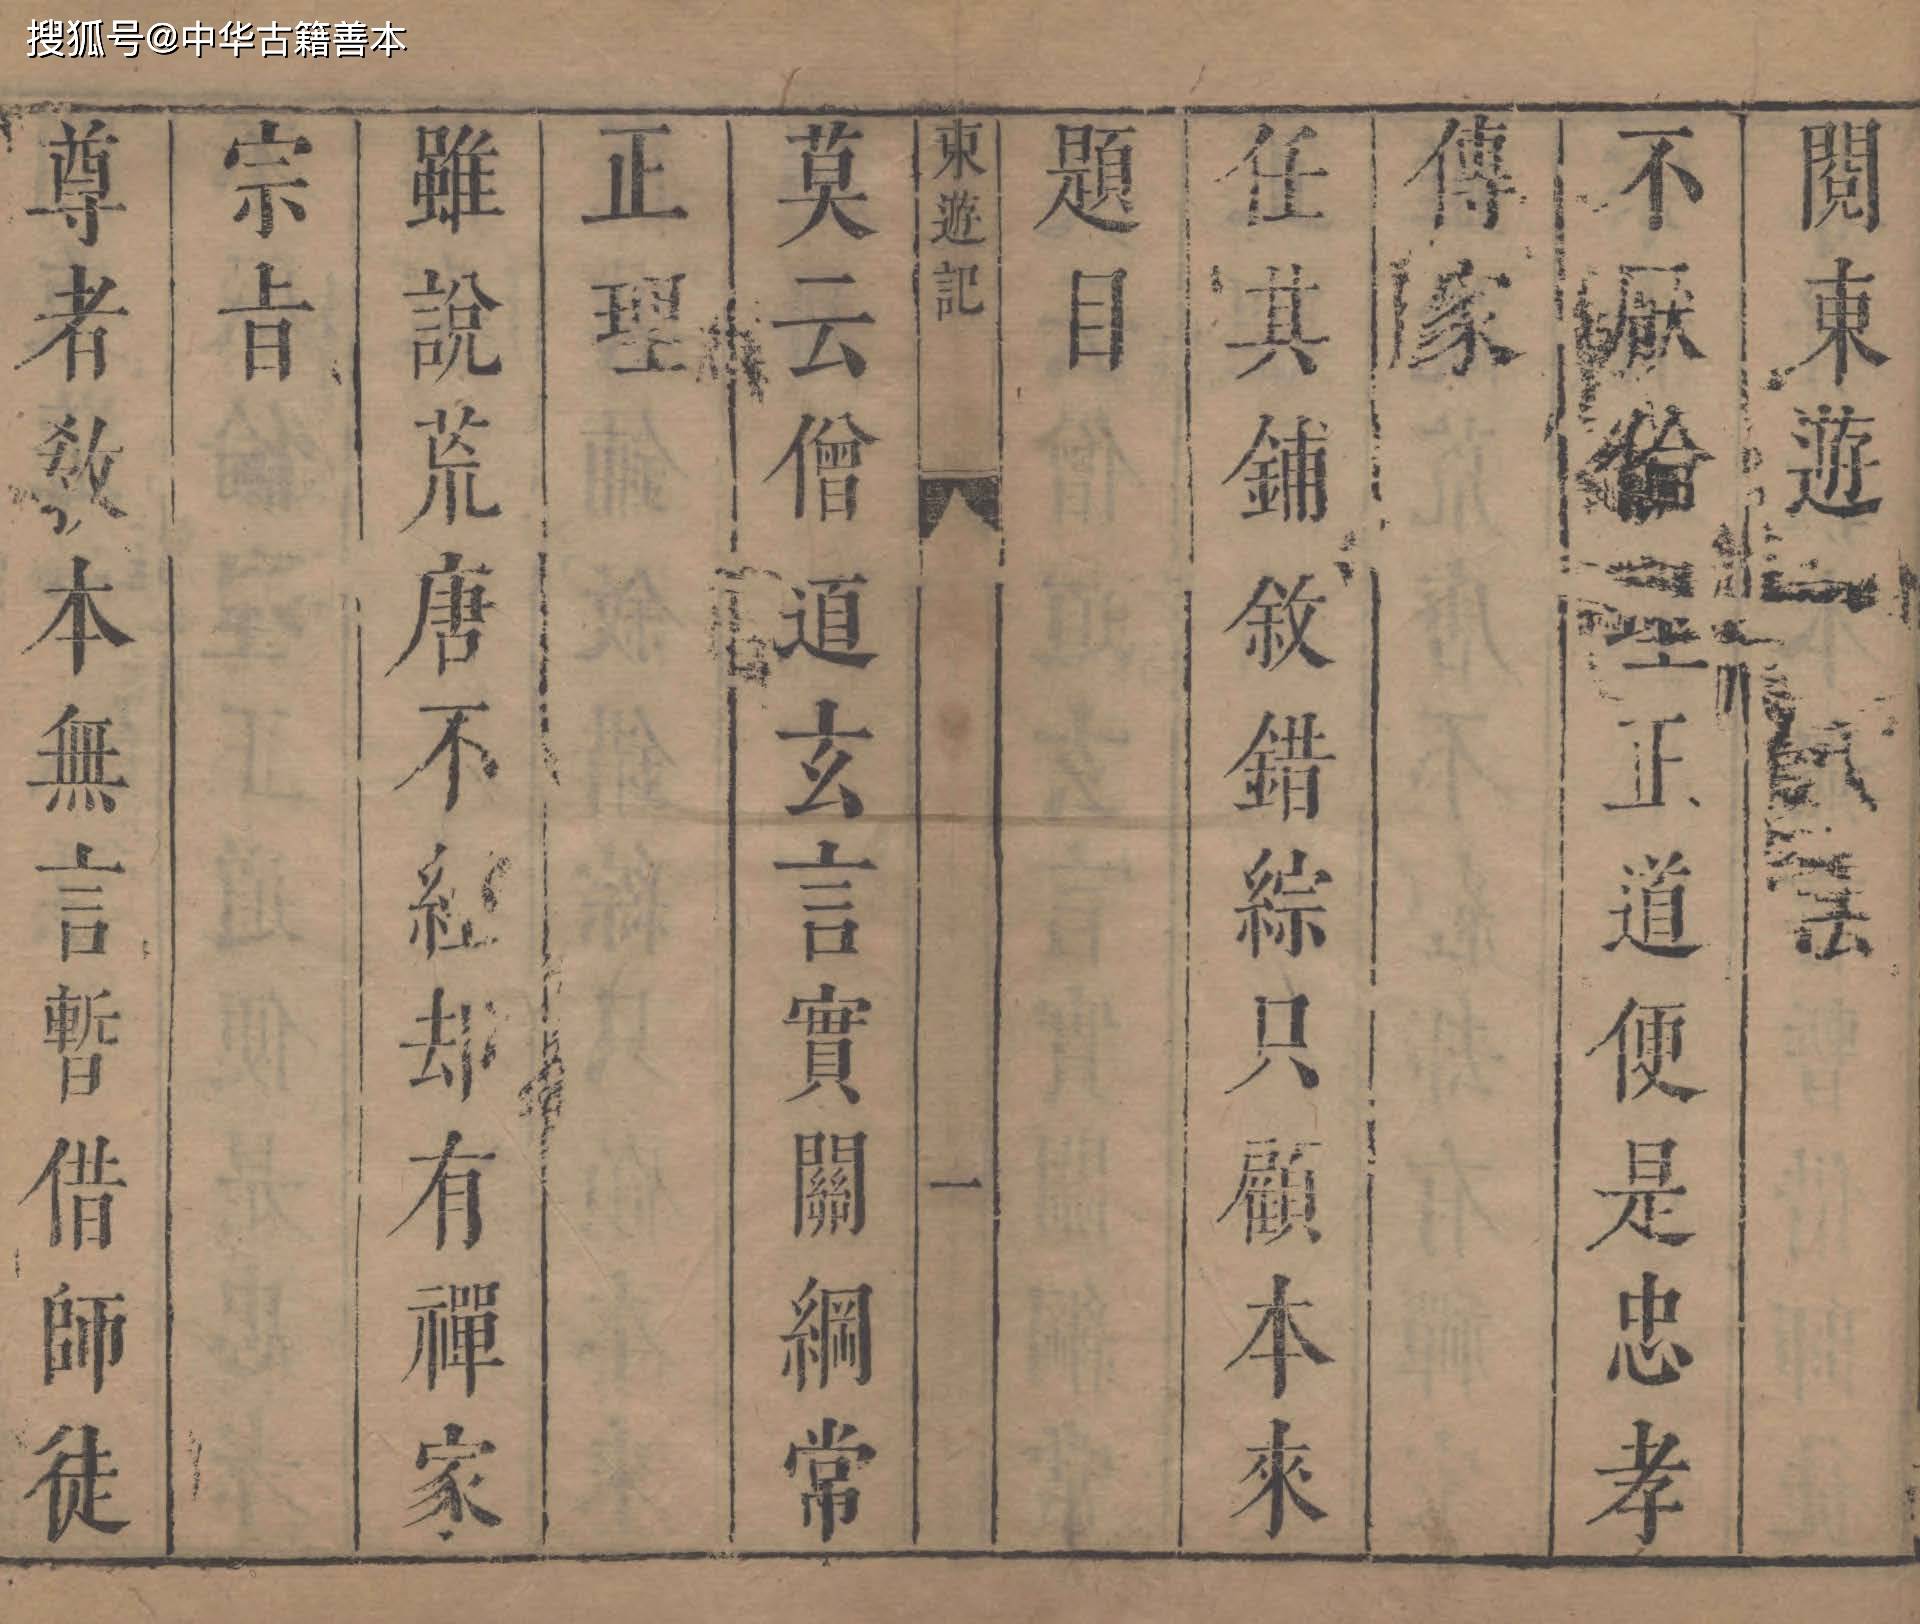 搜狐号@中华古籍善本
閱東遊 法
不厭倫理正道便是忠孝
傳家
任其鋪敘錯綜只顧本來
題目
東遊記 一
莫云僧道玄言實關綱常
正理
雖說荒唐不經却有禪家
宗旨
尊者敎本無言暫借師徒